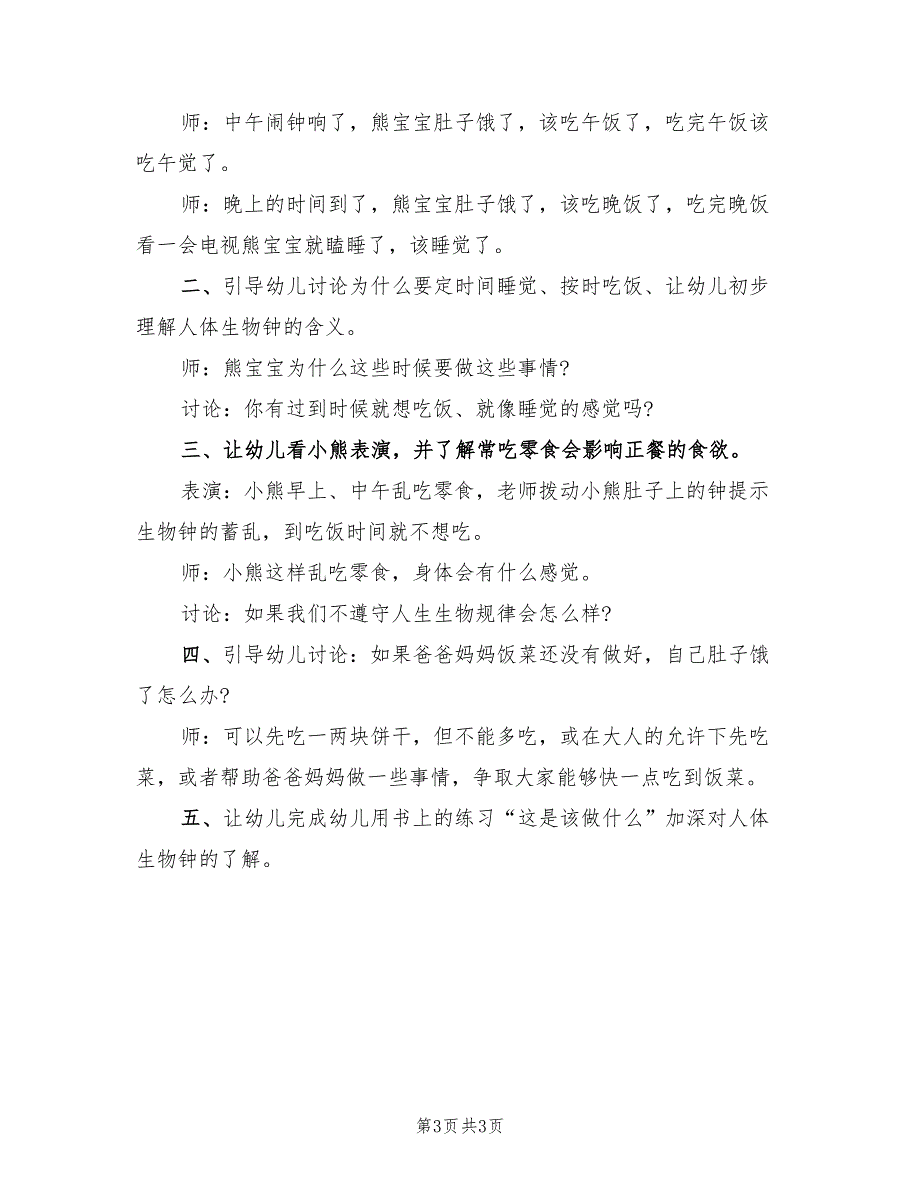 师：中午闹钟响了，熊宝宝肚子饿了，该吃午饭了，吃完午饭该
吃午觉了。
师：晚上的时间到了，熊宝宝肚子饿了，该吃晚饭了，吃完晚饭
看一会电视熊宝宝就瞌睡了，该睡觉了。
二、引导幼儿讨论为什么要定时间睡觉、按时吃饭、让幼儿初步
理解人体生物钟的含义。
师：熊宝宝为什么这些时候要做这些事情?
讨论：你有过到时候就想吃饭、就像睡觉的感觉吗?
三、让幼儿看小熊表演，并了解常吃零食会影响正餐的食欲。
表演：小熊早上、中午乱吃零食，老师拨动小熊肚子上的钟提示
生物钟的蓄乱，到吃饭时间就不想吃。
师：小熊这样乱吃零食，身体会有什么感觉。
讨论：如果我们不遵守人生生物规律会怎么样?
四、引导幼儿讨论：如果爸爸妈妈饭菜还没有做好，自己肚子饿
了怎么办?
师：可以先吃一两块饼干，但不能多吃，或在大人的允许下先吃
菜，或者帮助爸爸妈妈做一些事情，争取大家能够快一点吃到饭菜。
五、让幼儿完成幼儿用书上的练习“这是该做什么”加深对人体
生物钟的了解。
第3页 共3页